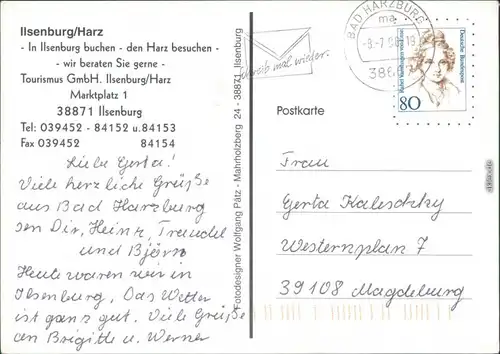 Ilsenburg/Harz
- In Ilsenburg buchen - den Harz besuchen -
- wir beraten Sie gerne -
Tourismus GmbH. Ilsenburg/Harz
Marktplatz 1
38871 Ilsenburg
Tel: 039452 - 84152 u.84153
Fax 039452 84154
Liebe Gerta!
Viele herzliche Grüße
aus Bad Harzburg
sen Dir, Heinz, Traudel
und Björn
Heute waren wir in
Ilsenburg, Das Wetter
ist ganz gut. Viele Grüße
an Brigitte u. Werner
Fotodesigner Wolfgang Pätz - Mahrholzberg 24 - 38871 Ilsenburg
Schreib mal wieder.
BAD HARZBURG
ma
-8.-7. 19
Deutsche Bundespost
80
Postkarte
Frau
Gerta Kaleschky
Westernplan 7
39108 Magdeburg